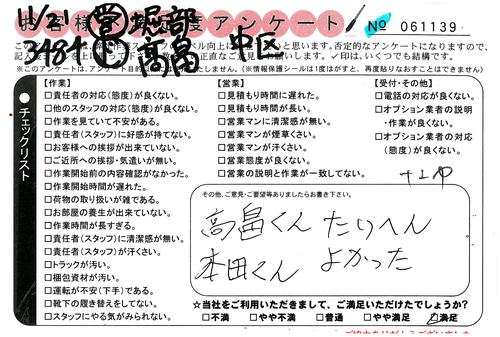 11/21 営 堀部
お客様満足度アンケート
№ 061139
高畠 中区
記入 正直なご意見をお願いします。✓印は、いくつでも結構です。
※このアンケートは、アンケート目的 (※情報保護シールは1度はがすと、再度貼りなおすことはできません)
チェックリスト
【作業】
□責任者の対応(態度)が良くない。
□他のスタッフの対応(態度)が良くない。
□作業を見ていて不安がある。
□責任者(スタッフ)に好感が持てない。
□お客様への挨拶が出来ていない。
□ご近所への挨拶・気遣いが無い。
□作業開始前の内容確認がなかった。
□作業開始時間が遅れた。
□荷物の取り扱いが雑である。
□お部屋の養生が出来ていない。
□作業時間が長すぎる。
□責任者(スタッフ)に清潔感が無い。
□責任者(スタッフ)が汗くさい。
□トラックが汚い。
□梱包資材が汚い。
□運転が不安(下手)である。
□靴下の履き替えをしてない。
□スタッフにやる気がみられない。
【営業】
□見積もり時間に遅れた。
□見積もり時間が長い。
□営業マンに清潔感が無い。
□営業マンが煙草くさい。
□営業マンが汗くさい。
□営業態度が良くない。
□営業の説明と作業が一致してない。
【受付・その他】
□電話の対応が良くない。
□オプション業者の説明
・作業が良くない。
□オプション業者の対応
(態度)が良くない。
その他、ご意見・ご要望等ありましたらお書き下さい。
高畠くん たいへん
本田くん よかった
☆当社をご利用いただきまして、ご満足いただけたでしょうか?
□不満 □やや不満 □普通 □やや満足 ☑満足